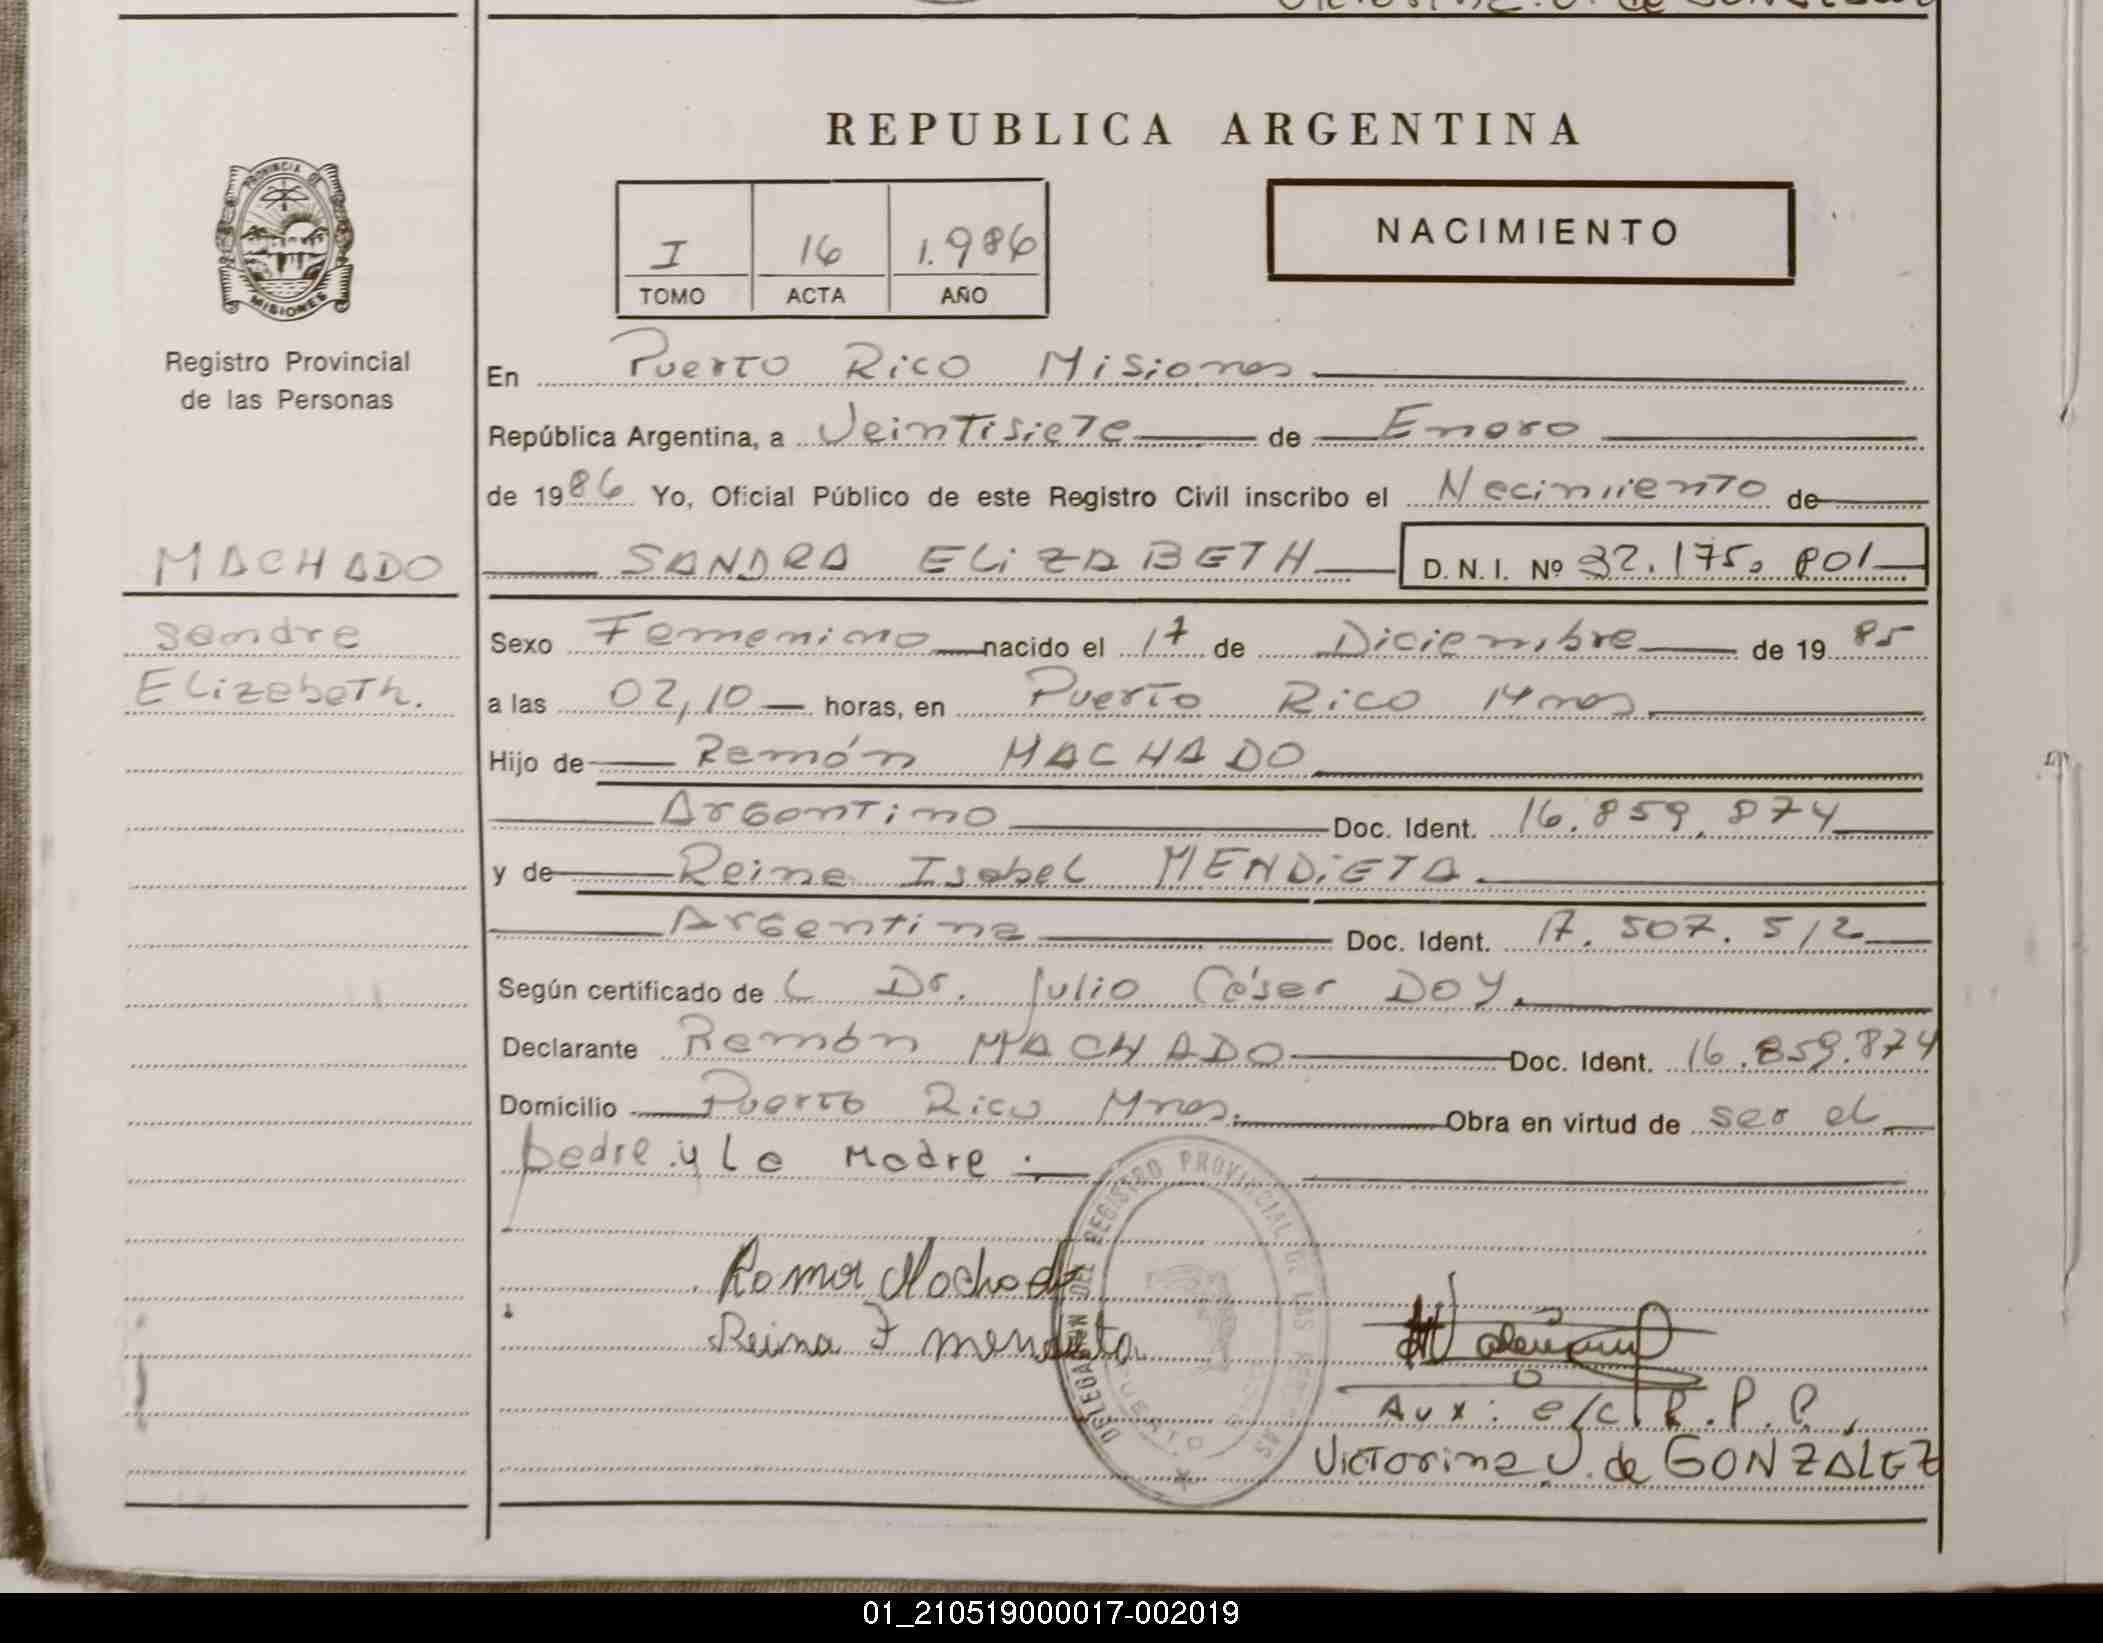 REPUBLICA ARGENTINA
PROVINCIA DE
MISIONES
Registro Provincial
de las Personas
I 16 1.986
TOMO ACTA AÑO
NACIMIENTO
En Puerto Rico Misiones
República Argentina, a Veintisiete de Enero
de 1986 Yo, Oficial Público de este Registro Civil inscribo el Necimiento de
MACHADO
SANDRA ELiZABETH D.N.I. Nº 32.175.801
Sandre
Elizebeth.
Sexo Femenino nacido el 17 de Diciembre de 1985
a las 02,10 horas, en Puerto Rico Mnes
Hijo de Remón MACHADO
Argentino Doc. Ident. 16.859.874
y de Reine Isabel MENDiETA.
Argentina Doc. Ident. 17.507.512
Según certificado de L Dr. Julio César DOY.
Declarante Remón MACHADO Doc. Ident. 16.859.874
Domicilio Puerto Rico Mnes. Obra en virtud de ser el
pedre y La Madre.
DELEGACION DEL REGISTRO PROVINCIAL DE LAS PERSONAS
PUERTO RICO
Machado
Reina I mendieta
Aux: e/c R.P.P.
Victorina J. de GONZÁLEZ
01_210519000017-002019